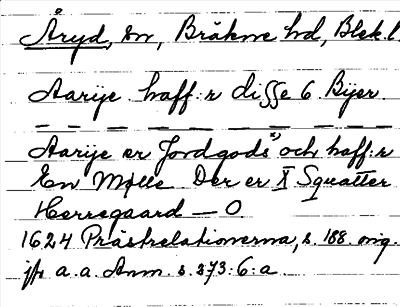 Åryd, sn, Bräkne hd, Blek. l.
Aarije haff:r disse 6. Bijer.
— — — — — — — — —
Aarije er Jordgods" och haff:r
En Mølle Der er X Squatter
Herregaard — O
1624 Prästrelationerna, s. 188. orig.
jfr a.a. Anm. s. 273:6:a